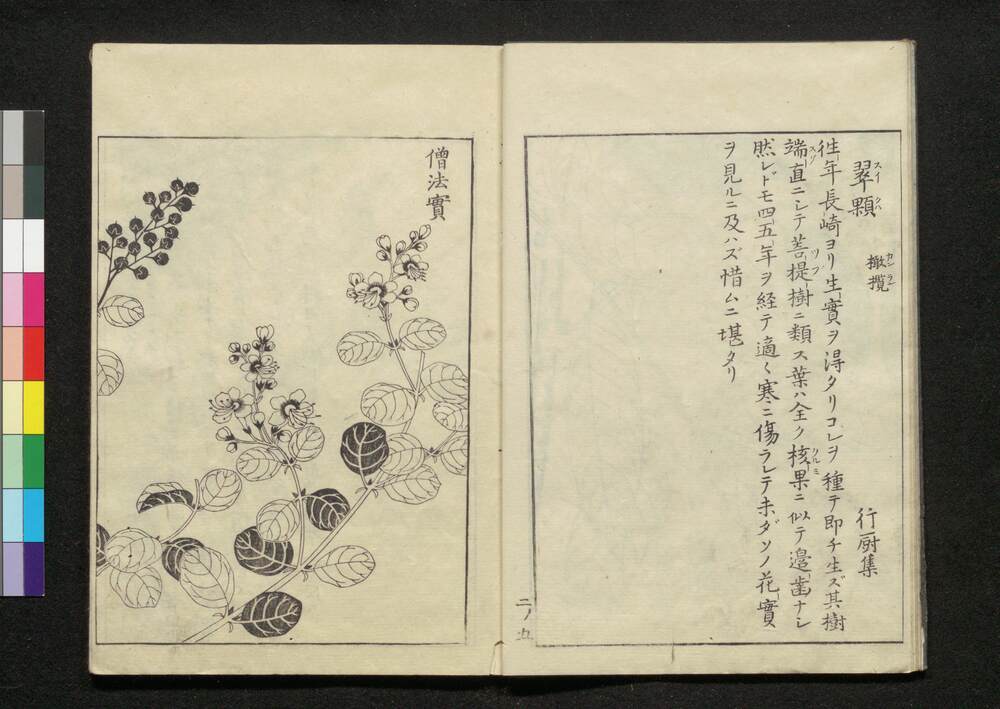 翠顆 橄欖 行厨集
徃年長崎ヨリ生實ヲ淂タリコレヲ種テ即チ生ズ其樹
端直ニシテ菩提樹ニ類ス葉ハ全ク核果ニ似テ邉齒ナシ
然レドモ四五年ヲ経テ適〱寒ニ傷ラレテ未ダソノ花實
ヲ見ルニ及ハズ惜ムニ堪タリ
二ノ五
僧法實